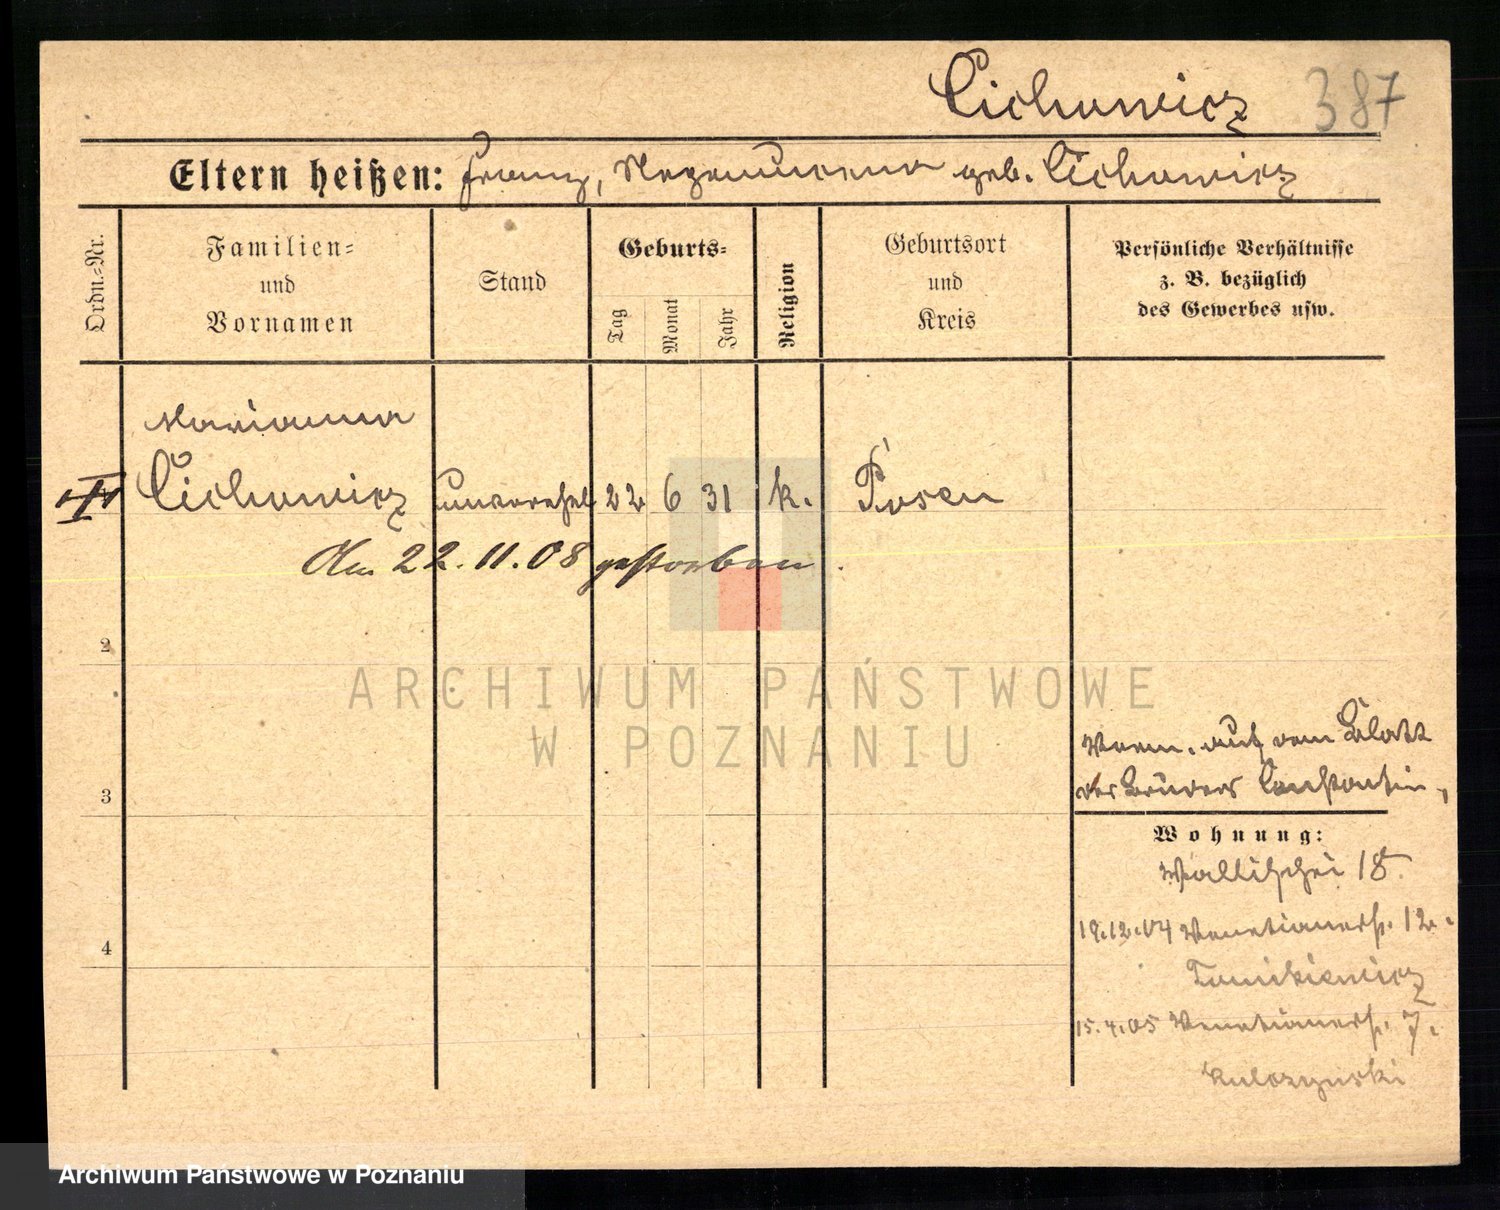 Cichowicz 387
Eltern heißen: Franz, Nepomucena geb. Cichowicz
Ordn.=Nr.
Familien=
und
Vornamen
Stand
Geburts=
Tag
Monat
Jahr
Religion
Geburtsort
und
Kreis
Persönliche Verhältnisse
z. B. bezüglich
des Gewerbes usw.
Marianna
Cichowicz unverehel. 22 6 31 k. Posen
Am 22.11.08 gestorben.
2
3
4
Verm. auf dem Blatt
des Bruders Constantin,
Wohnung:
Wallischei 18.
19.12.04 Venetianerstr. 12.
15.4.05 Venetianerstr. 7.
ARCHIWUM PAŃSTWOWE
W POZNANIU
Archiwum Państwowe w Poznaniu